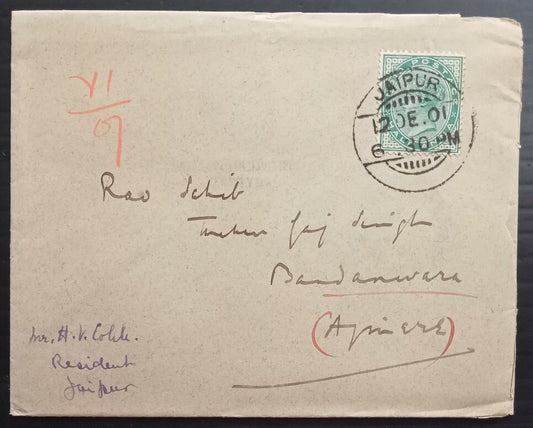 POSTAGE
JAIPUR
12 DE. 01
6 . 30 PM
VI
Rao Sahib
Thakur Gaj Singh
Bandanwara
(Ajmere)
Mr. H. V. Cobb.
Resident
Jaipur